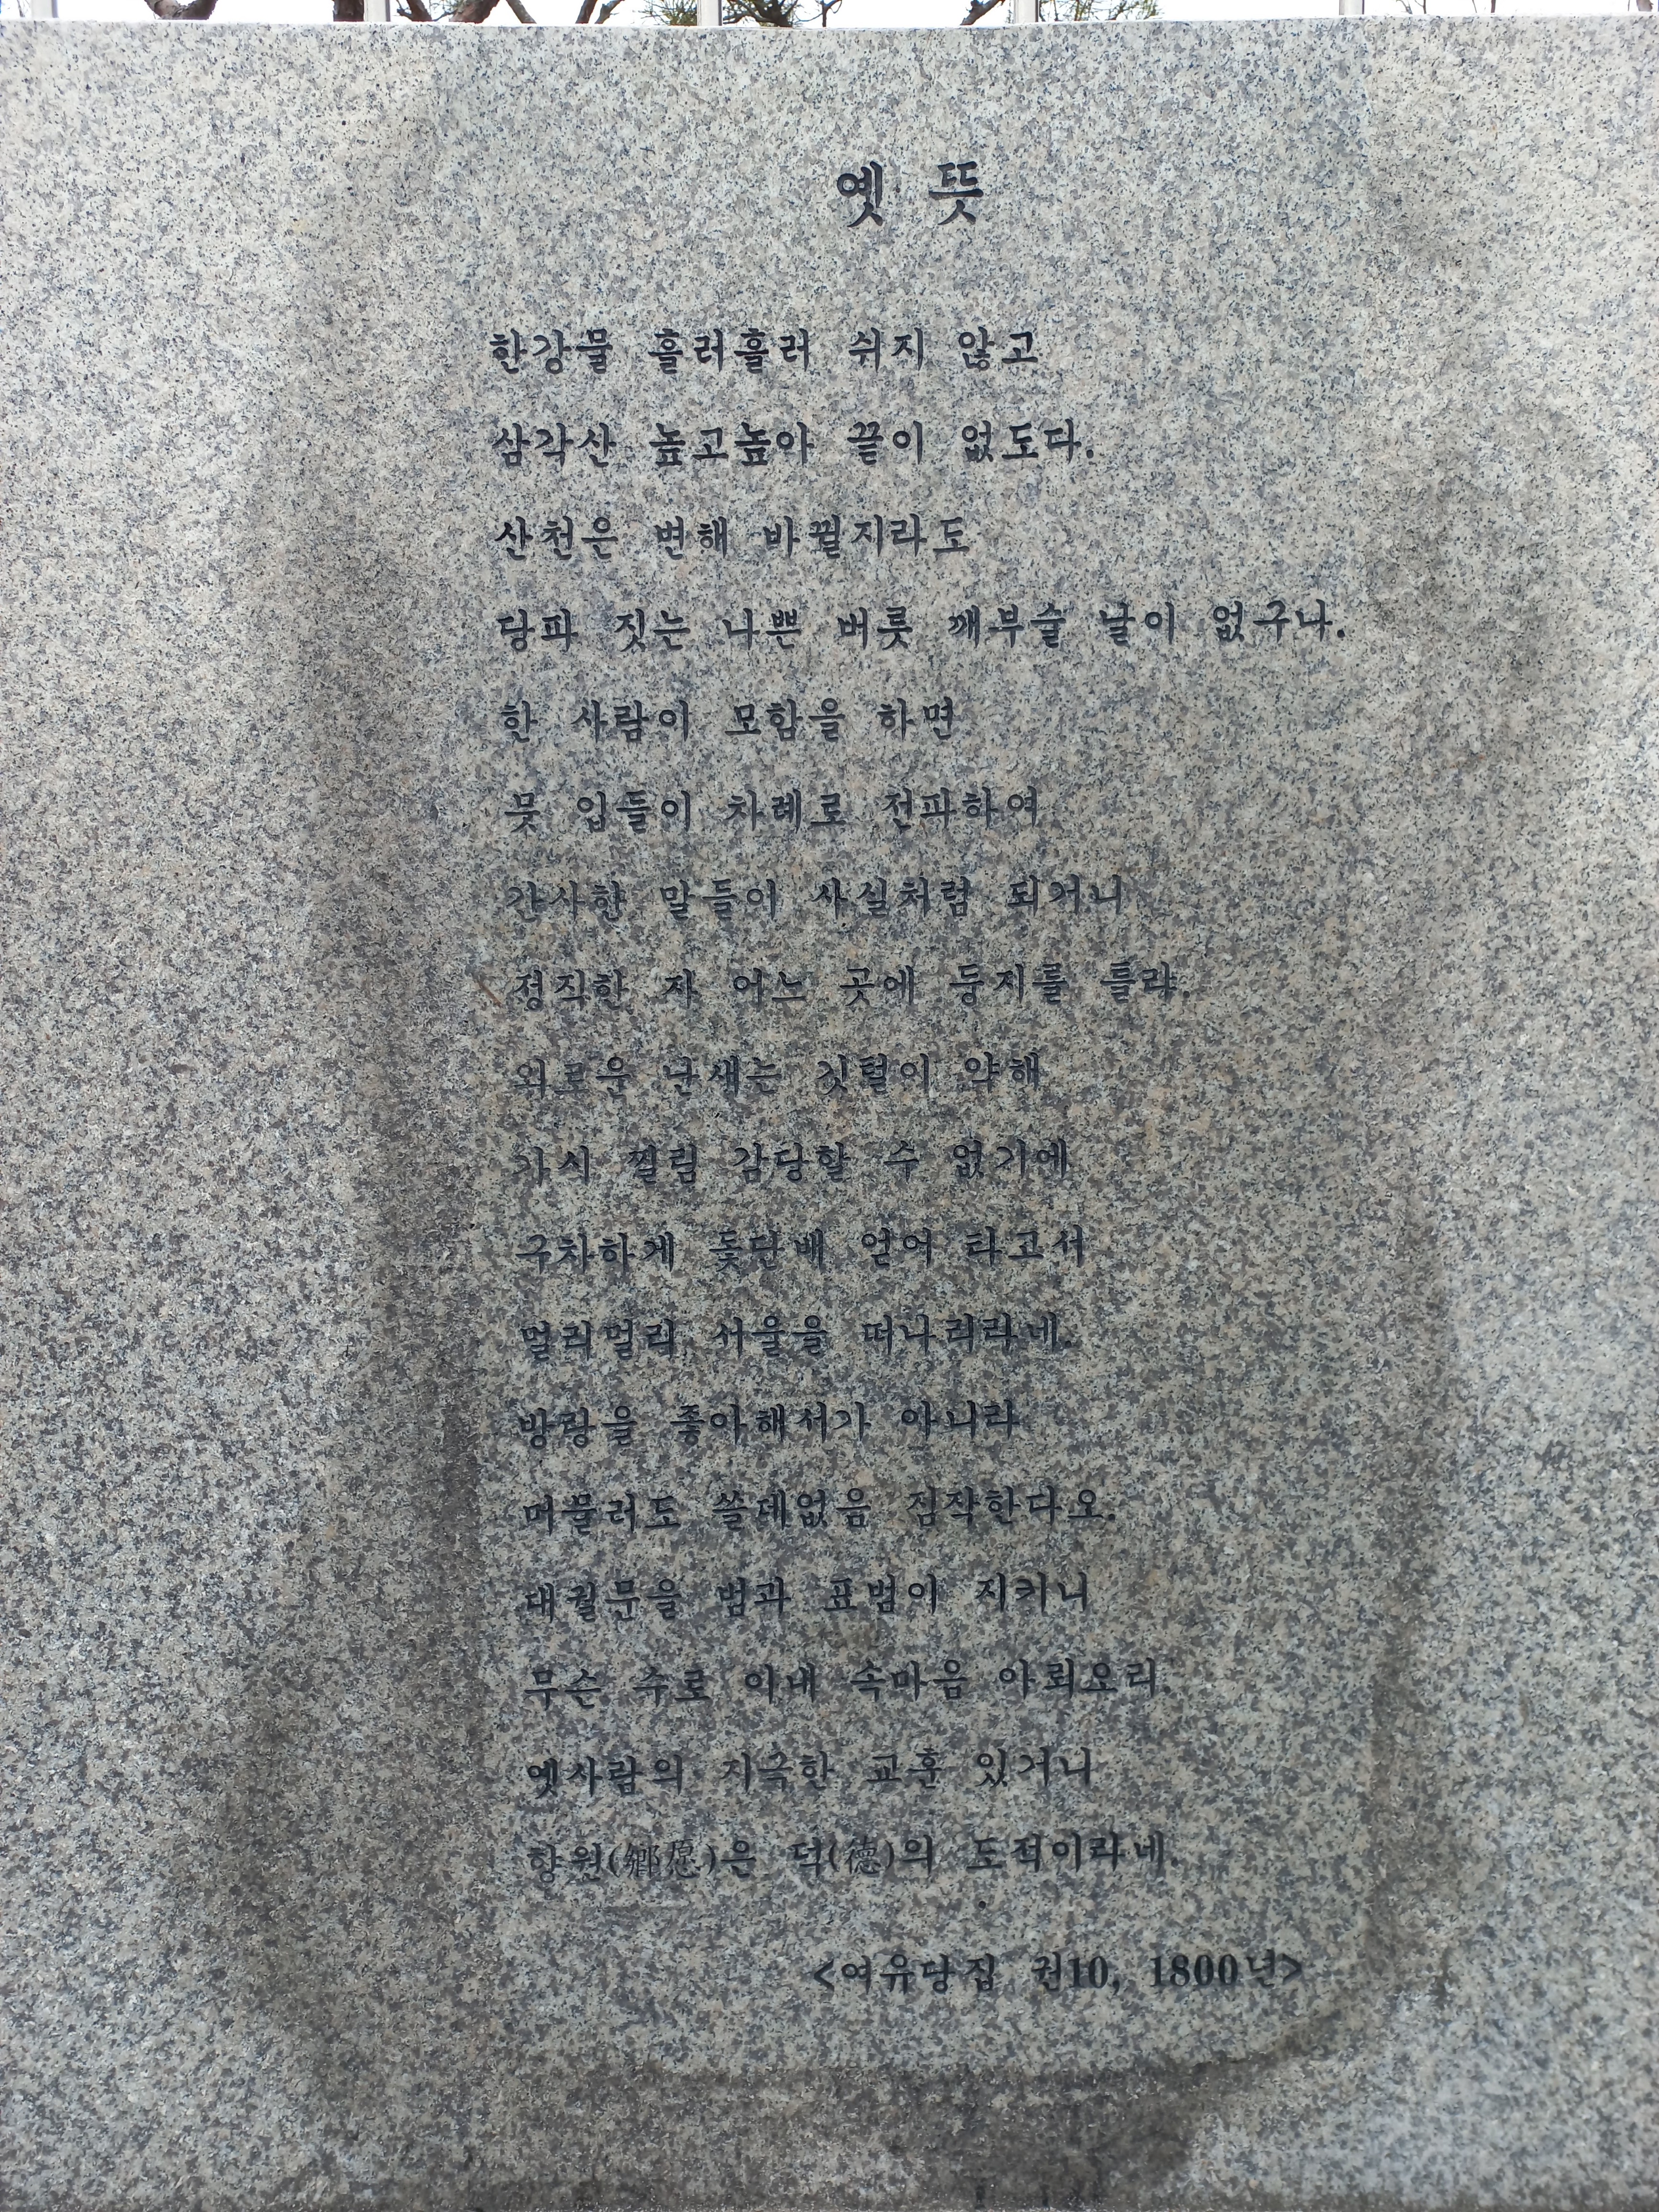 옛 뜻
한강물 흘러흘러 쉬지 않고
삼각산 높고높아 끝이 없도다.
산천은 변해 바뀔지라도
당파 짓는 나쁜 버릇 깨부술 날이 없구나.
한 사람이 모함을 하면
뭇 입들이 차례로 전파하여
간사한 말들이 사실처럼 되거니
정직한 자 어느 곳에 둥지를 틀랴.
외로운 난새는 깃털이 약해
가시 찔림 감당할 수 없기에
구차하게 돛단배 얻어 타고서
멀리멀리 서울을 떠나리라네.
방랑을 좋아해서가 아니라
머물러도 쓸데없음 짐작한다오.
대궐문을 범과 표범이 지키니
무슨 수로 이내 속마음 아뢰오리.
옛사람의 지극한 교훈 있거니
향원(鄕愿)은 덕(德)의 도적이라네.
<여유당집 권10, 1800년>